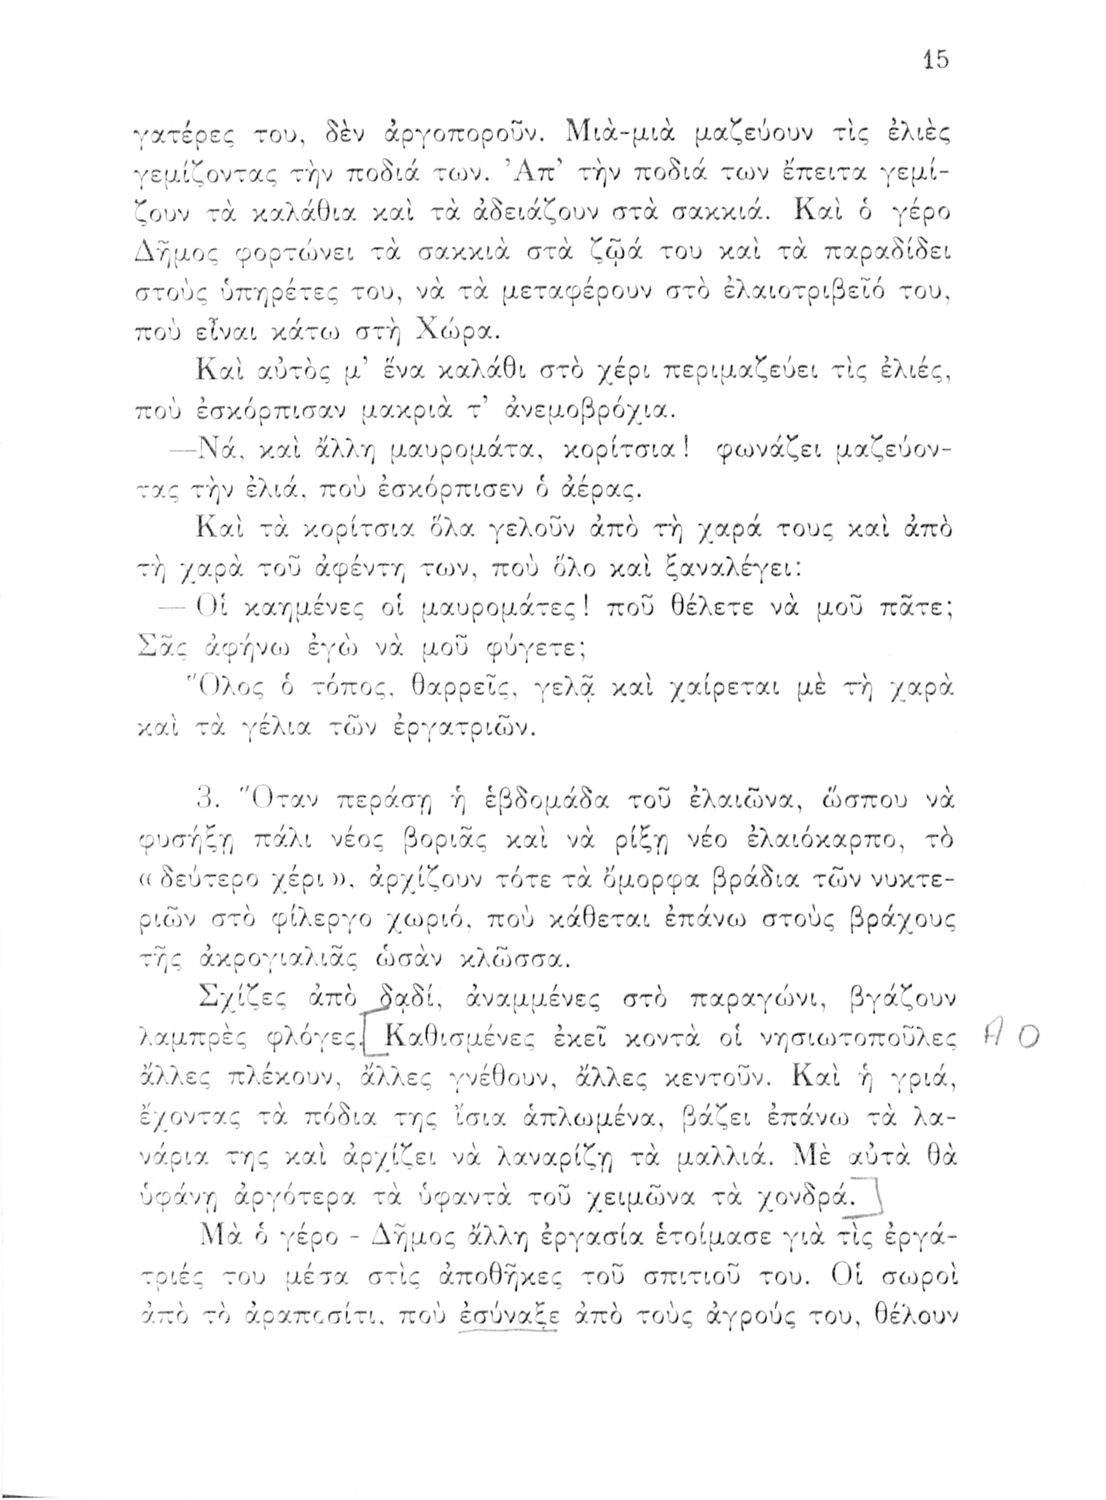 15
γατέρες του, δὲν ἀργοποροῦν. Μιὰ-μιὰ μαζεύουν τὶς ἐλιὲς
γεμίζοντας τὴν ποδιά των. Ἀπ’ τὴν ποδιά των ἔπειτα γεμί-
ζουν τὰ καλάθια καὶ τὰ ἀδειάζουν στὰ σακκιά. Καὶ ὁ γέρο
Δῆμος φορτώνει τὰ σακκιὰ στὰ ζῷά του καὶ τὰ παραδίδει
στοὺς ὑπηρέτες του, νὰ τὰ μεταφέρουν στὸ ἐλαιοτριβεῖό του,
ποὺ εἶναι κάτω στὴ Χώρα.
Καὶ αὐτὸς μ’ ἕνα καλάθι στὸ χέρι περιμαζεύει τὶς ἐλιές,
ποὺ ἐσκόρπισαν μακριὰ τ’ ἀνεμοβρόχια.
—Νά, καὶ ἄλλη μαυρομάτα, κορίτσια! φωνάζει μαζεύον-
τας τὴν ἐλιά, ποὺ ἐσκόρπισεν ὁ ἀέρας.
Καὶ τὰ κορίτσια ὅλα γελοῦν ἀπὸ τὴ χαρά τους καὶ ἀπὸ
τὴ χαρὰ τοῦ ἀφέντη των, ποὺ ὅλο καὶ ξαναλέγει:
— Οἱ καημένες οἱ μαυρομάτες! ποῦ θέλετε νὰ μοῦ πᾶτε;
Σᾶς ἀφήνω ἐγὼ νὰ μοῦ φύγετε;
Ὅλος ὁ τόπος, θαρρεῖς, γελᾷ καὶ χαίρεται μὲ τὴ χαρὰ
καὶ τὰ γέλια τῶν ἐργατριῶν.
3. Ὅταν περάσῃ ἡ ἑβδομάδα τοῦ ἐλαιῶνα, ὥσπου νὰ
φυσήξῃ πάλι νέος βοριᾶς καὶ νὰ ρίξῃ νέο ἐλαιόκαρπο, τὸ
« δεύτερο χέρι », ἀρχίζουν τότε τὰ ὄμορφα βράδια τῶν νυκτε-
ριῶν στὸ φίλεργο χωριό, ποὺ κάθεται ἐπάνω στοὺς βράχους
τῆς ἀκρογιαλιᾶς ὡσὰν κλῶσσα.
Σχίζες ἀπὸ δᾳδί, ἀναμμένες στὸ παραγώνι, βγάζουν
λαμπρὲς φλόγες. [Καθισμένες ἐκεῖ κοντὰ οἱ νησιωτοποῦλες ΑΟ
ἄλλες πλέκουν, ἄλλες γνέθουν, ἄλλες κεντοῦν. Καὶ ἡ γριά,
ἔχοντας τὰ πόδια της ἴσια ἁπλωμένα, βάζει ἐπάνω τὰ λα-
νάρια της καὶ ἀρχίζει νὰ λαναρίζῃ τὰ μαλλιά. Μὲ αὐτὰ θὰ
ὑφάνῃ ἀργότερα τὰ ὑφαντὰ τοῦ χειμῶνα τὰ χονδρά.]
Μὰ ὁ γέρο - Δῆμος ἄλλη ἐργασία ἑτοίμασε γιὰ τὶς ἐργά-
τριές του μέσα στὶς ἀποθῆκες τοῦ σπιτιοῦ του. Οἱ σωροὶ
ἀπὸ τὸ ἀραποσίτι, ποὺ ἐσύναξε ἀπὸ τοὺς ἀγρούς του, θέλουν